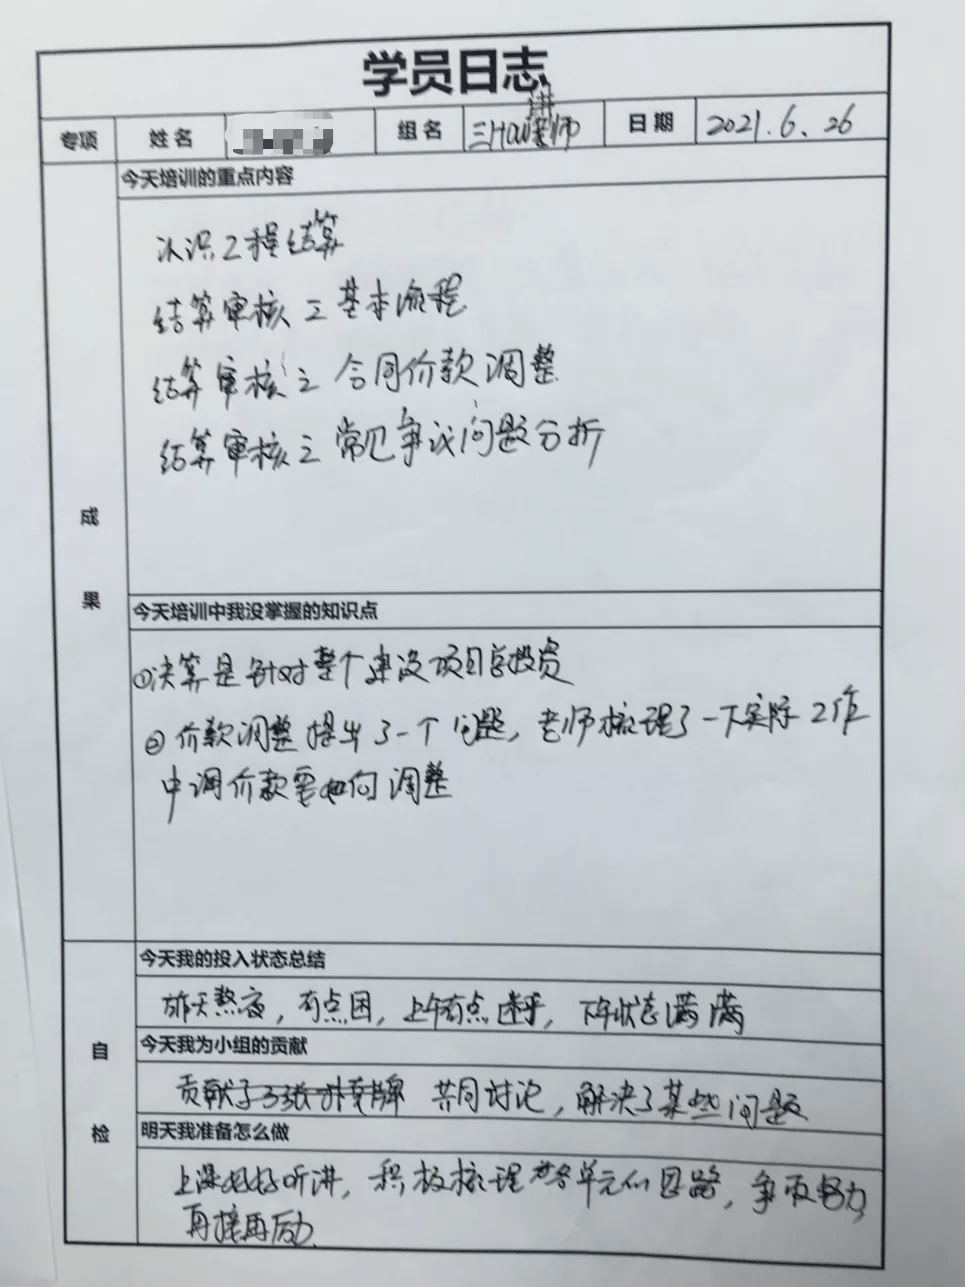 学员日志
专项 姓名 组名 日期 2021.6.26
今天培训的重点内容
认识工程结算
结算审核之基本流程
结算审核之合同价款调整
结算审核之常见争议问题分析
成果
今天培训中我没掌握的知识点
①决算是针对整个建设项目总投资
②价款调整提出了一个问题，老师梳理了一下实际工作
中调价款要如何调整
今天我的投入状态总结
昨天熬夜，有点困，上午有点迷乎，下午状态满满
自检
今天我为小组的贡献
共同讨论，解决了某些问题
明天我准备怎么做
上课好好听讲，积极梳理各单元的思路，争取努力
再接再励